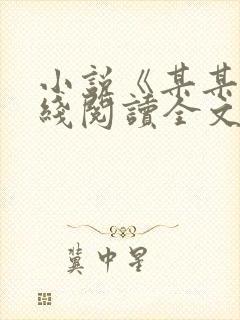 小說《某某
綫閱讀全文
冀中星